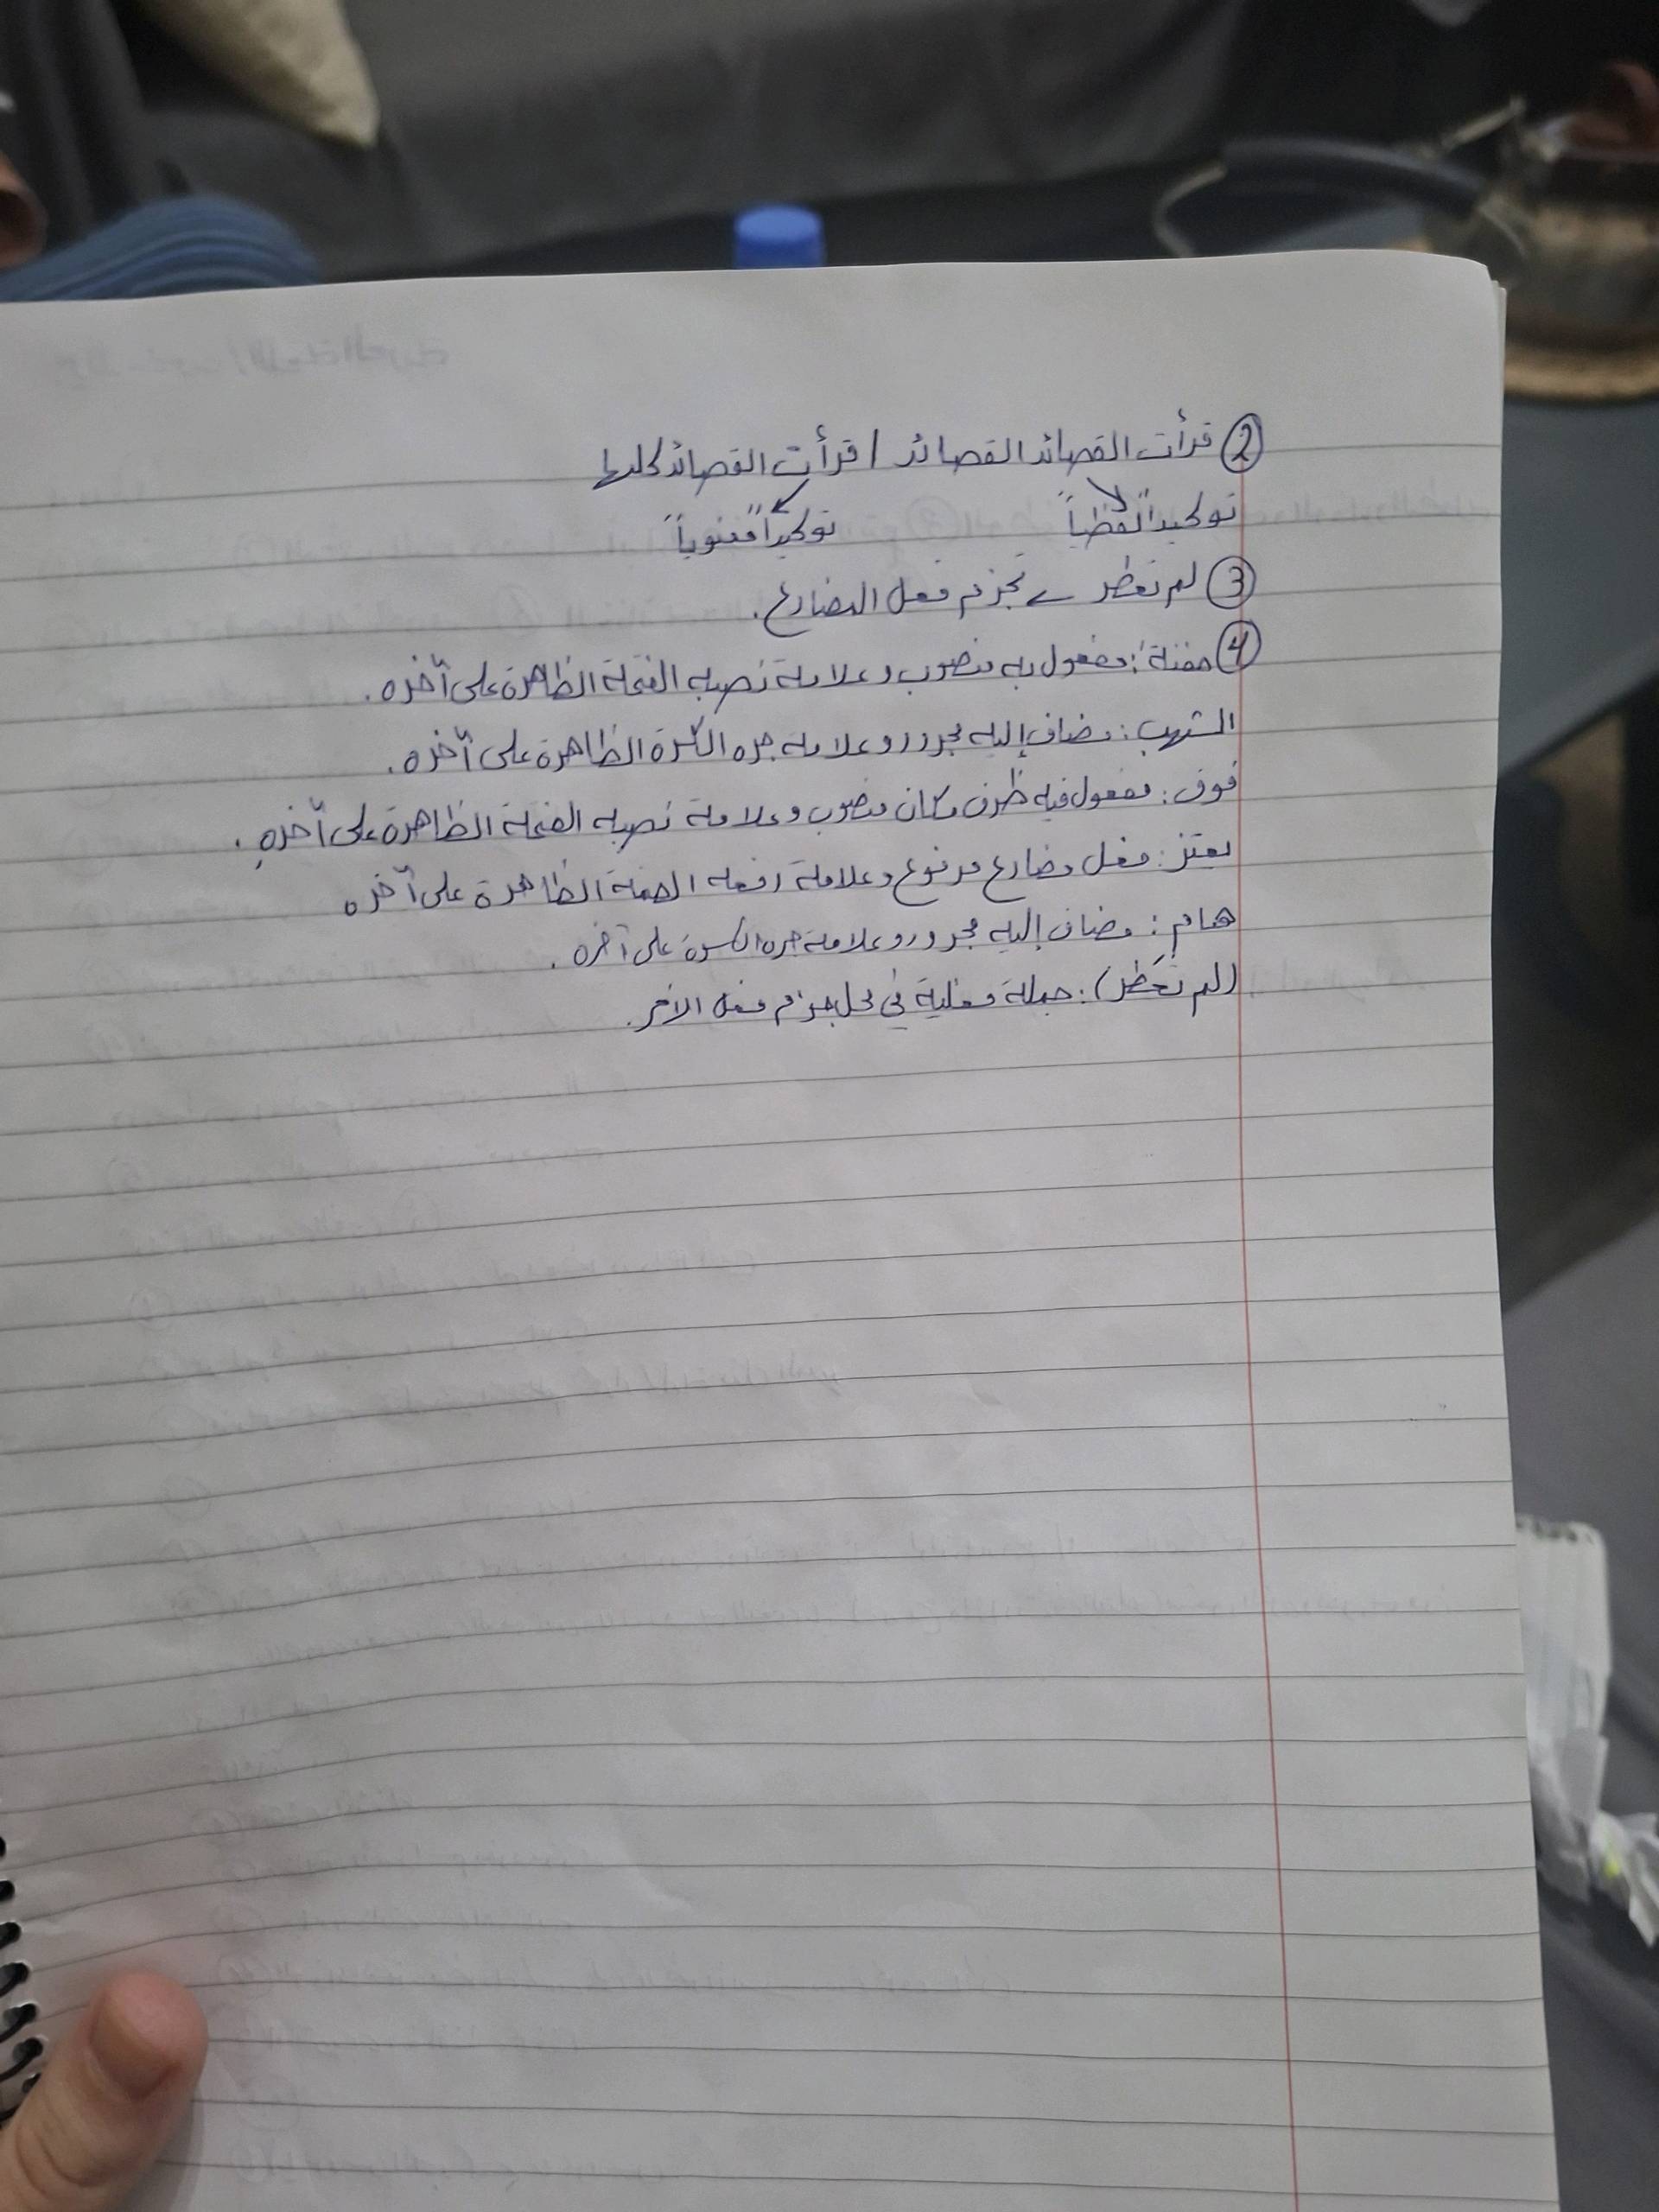 ② قرأت القصائد القصائد / قرأت القصائد كلها
توكيداً لفظياً توكيداً معنوياً
③ لم تعطر ← تجزم فعل المضارع.
④ حفنة: مفعول به منصوب وعلامة نصبه الفتحة الظاهرة على آخره.
الشهب: مضاف إليه مجرور وعلامة جره الكسرة الظاهرة على آخره.
فوق: مفعول فيه ظرف مكان منصوب وعلامة نصبه الفتحة الظاهرة على آخره.
يعتز: فعل مضارع مرفوع وعلامة رفعه الضمة الظاهرة على آخره
هام: مضاف إليه مجرور وعلامة جره الكسرة على آخره.
(لم تعطر): جملة فعلية في محل جزم فعل الأمر.